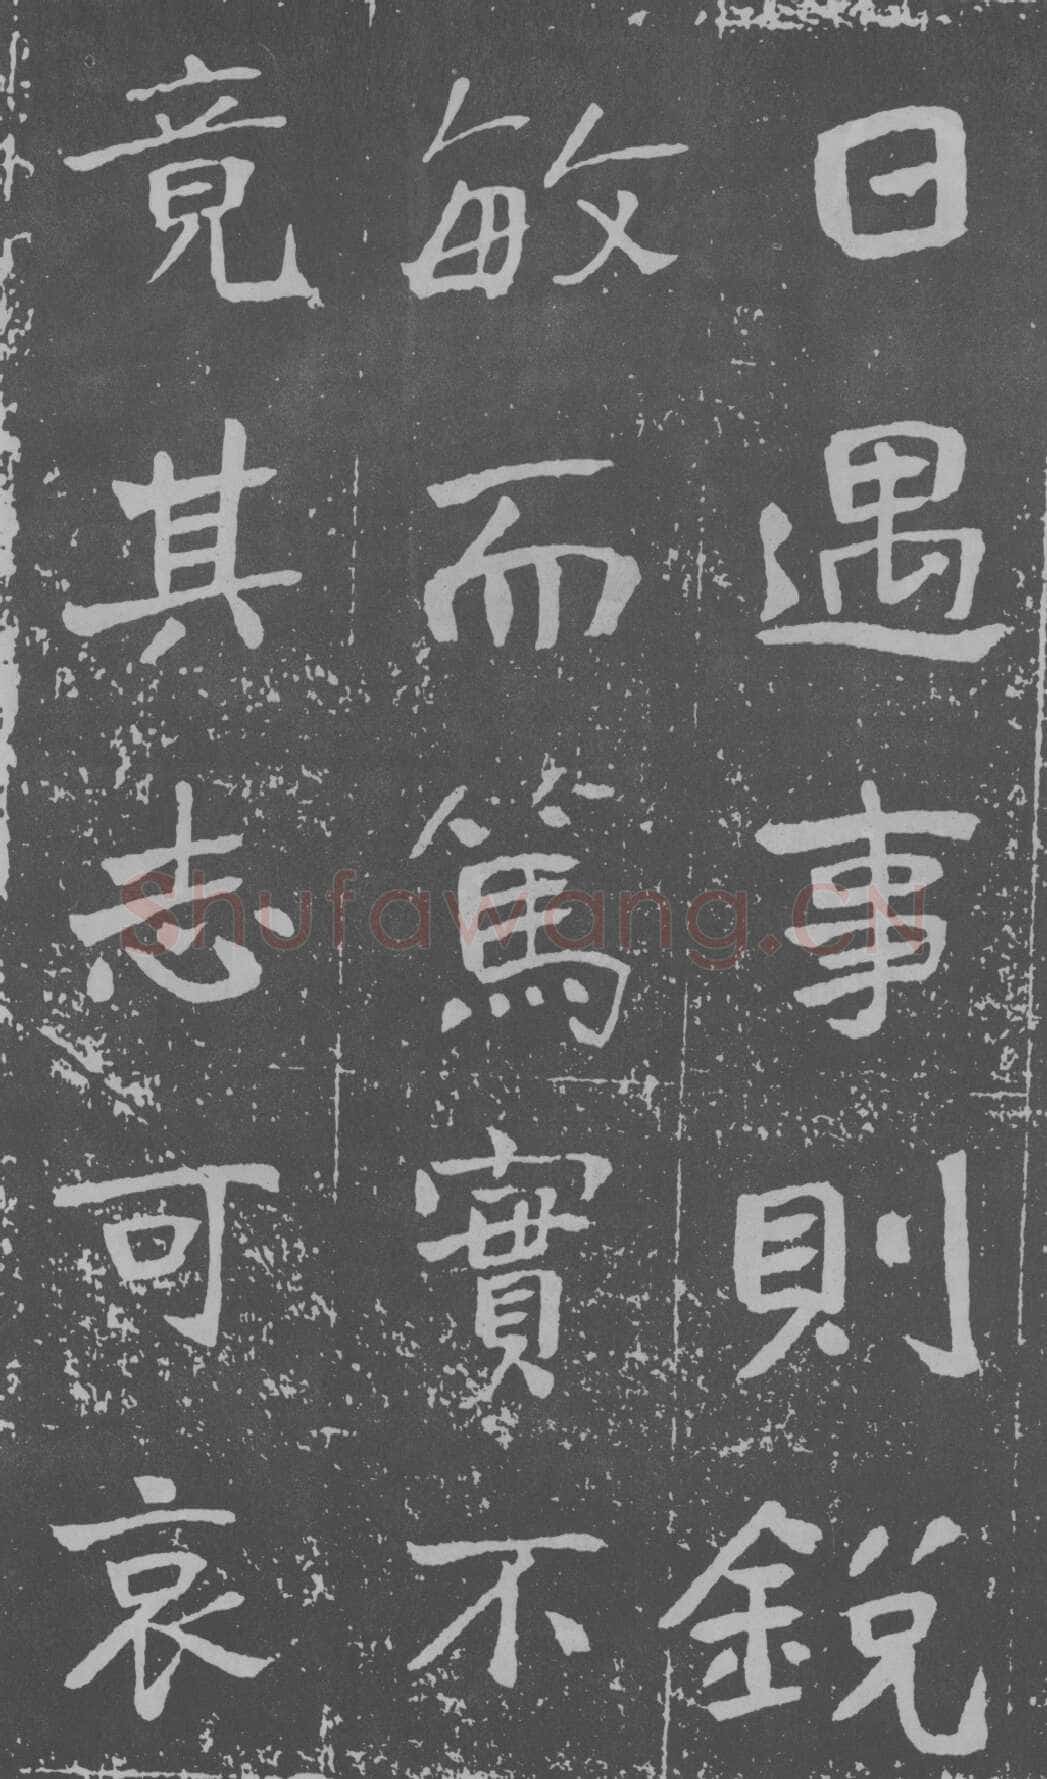 日遇事則銳
敏而篤實不
竟其志可哀
Shufawang.CN